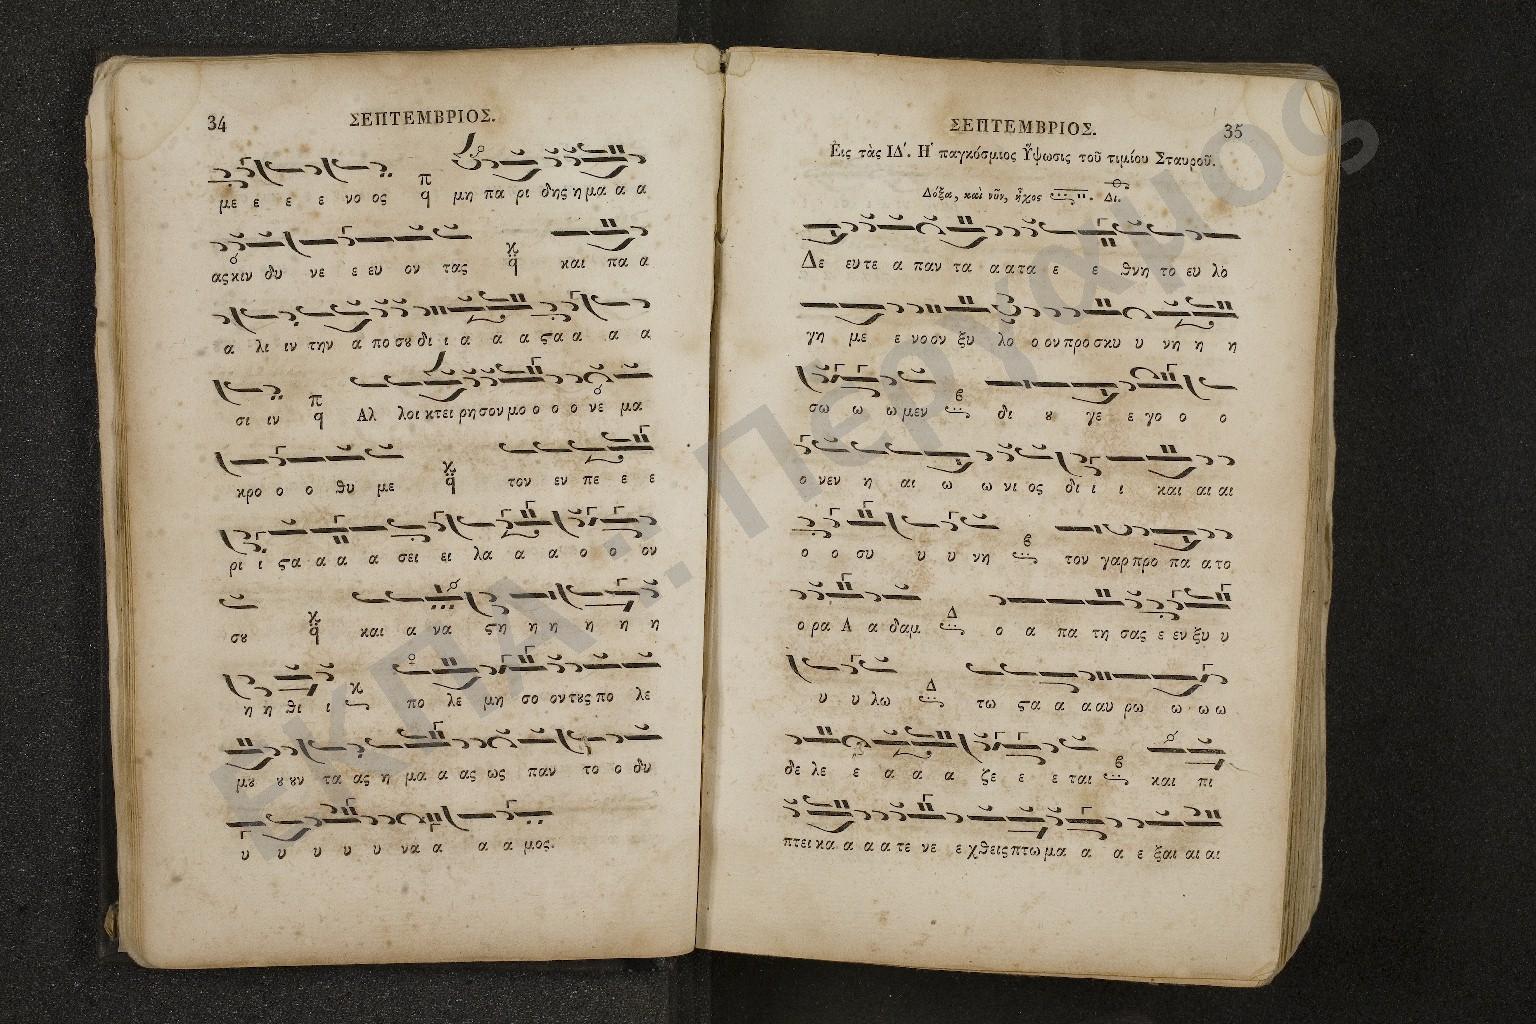 34
ΣΕΠΤΕΜΒΡΙΟΣ.
με ε ε ε νο ος π q μη πα ρι δης η μα α α
ας κιν δυ νε ε ευ ον τας ϰ q και πα α
α λι ιν την α πο σȣ δι ι α α α ϛα α α α
σι ιν π q Αλ λοι κτει ρη σον μο ο ο ο νε μα
κρο ο ο θυ με ϰ q τον εν πε ε ε
ρι ι ϛα α α α σει ει λα α α ο ο ον
σȣ ϰ q και α να ϛη η η η η η
η η θι ι ϰ πο λε μη σο ον τȣς πο λε
μȣ ȣ ȣν τα ας η μα α ας ως παν το ο δυ
υ υ υ υ υ να α α α μος.
35
ΣΕΠΤΕΜΒΡΙΟΣ.
Εις τὰς ΙΔ'. Η' παγκόσμιος Ὕψωσις τοῦ τιμίου Σταυροῦ.
Δόξα, καὶ νῦν, ἦχος Δι.
Δε ευ τε α παν τα α α τα ε ε θνη το ευ λο
γη με ε νο ον ξυ λο ο ον προ σκυ υ νη η η
σω ω ω μεν β δι ȣ γε ε γο ο ο
ο νεν η αι ω ω νι ος δι ι ι και αι αι
ο ο συ υ υ νη β τον γαρ προ πα α το
ο ρα Α α δαμ Δ ο α πα τη σας ε εν ξυ υ
υ υ λω Δ τω ϛα α α αυ ρω ω ω ω
δε λε ε α α α ζε ε ε ται β και πι
πτει κα α α α τε νε ε χθεις πτω μα α α ε ξαι αι αι